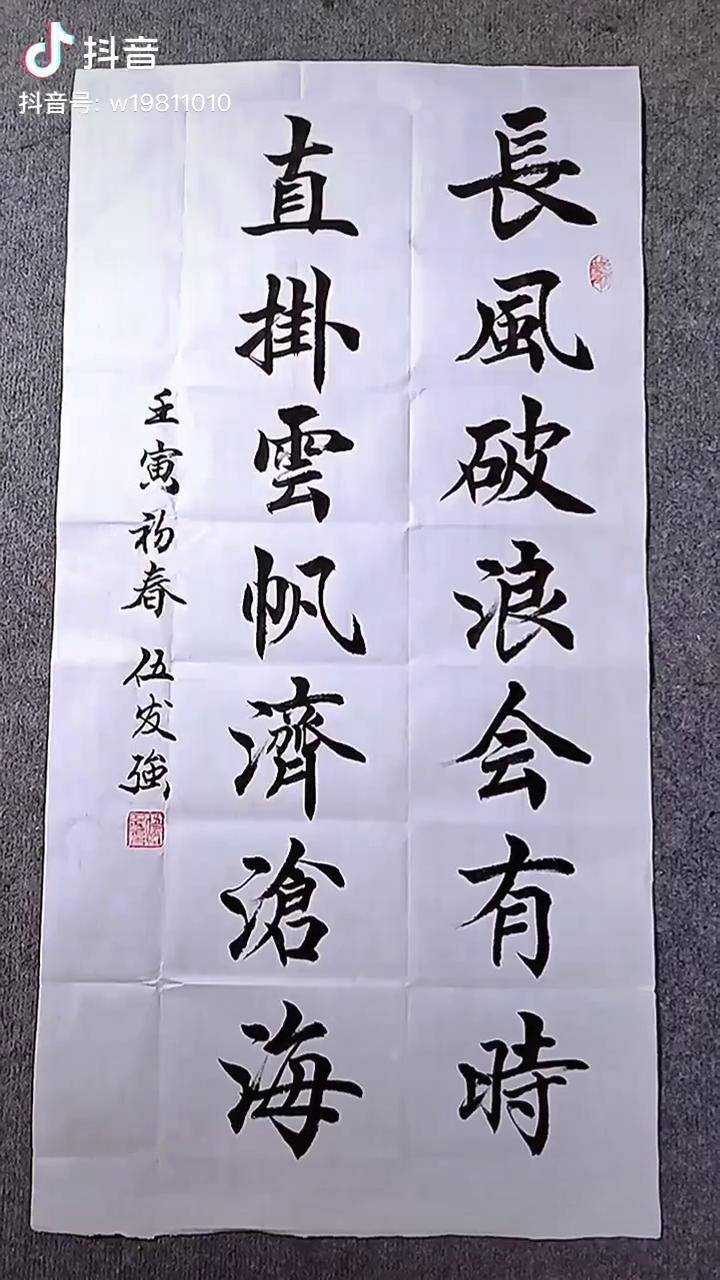 抖音
抖音号: w19811010
長風破浪会有時
直掛雲帆濟滄海
壬寅初春 伍发強